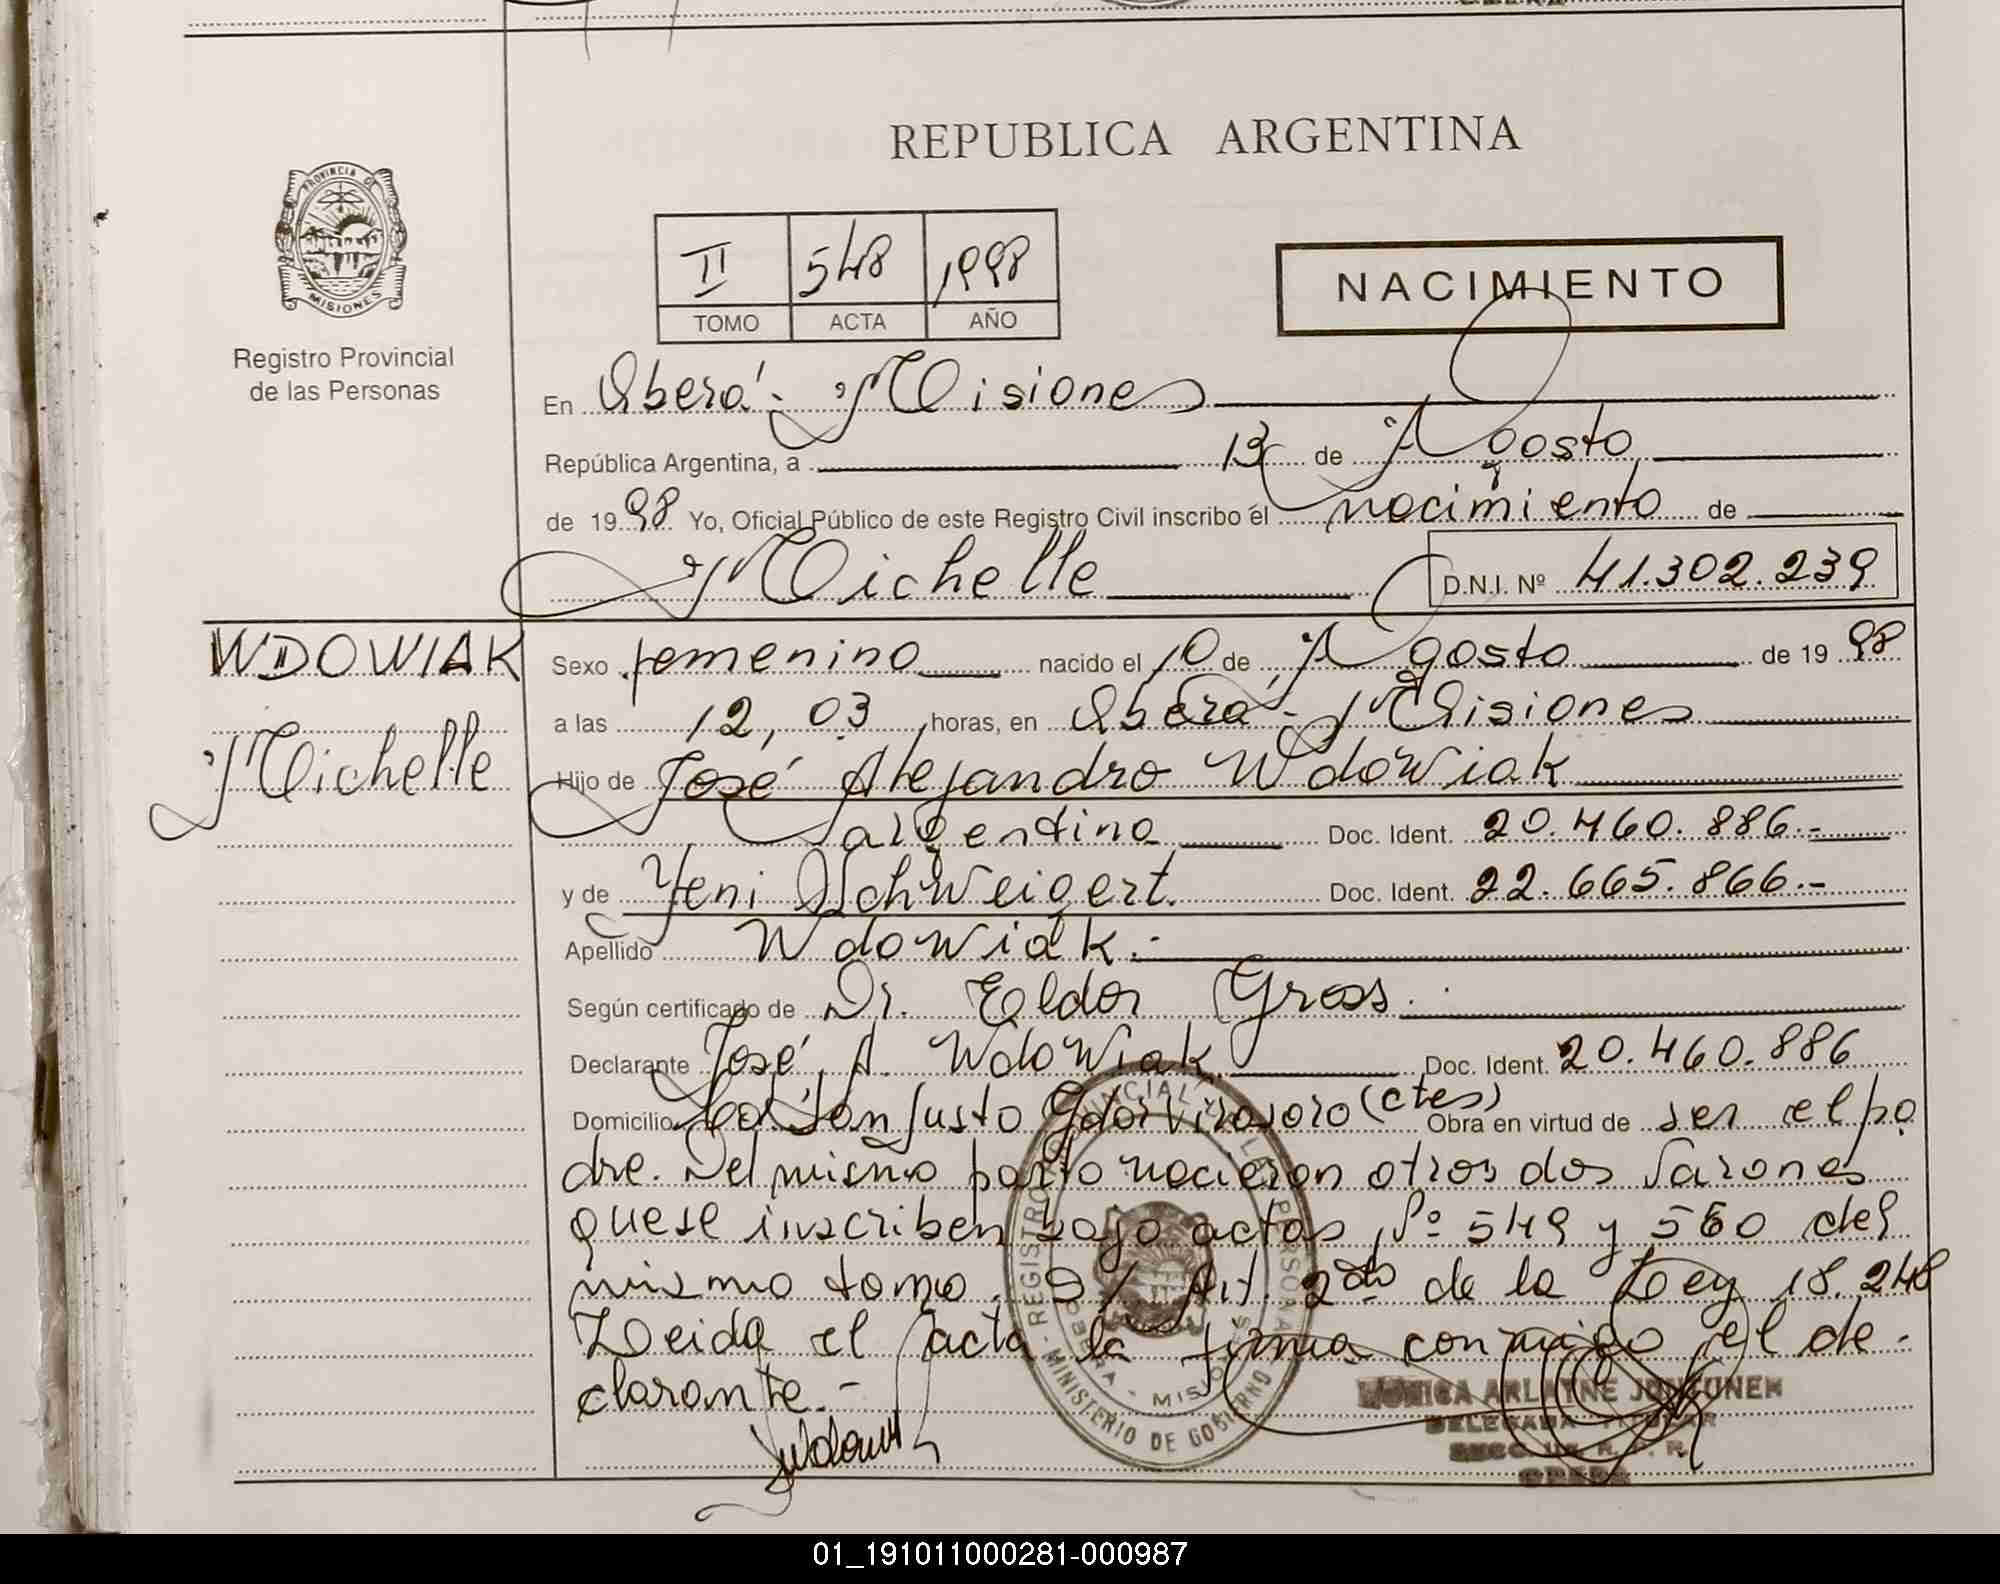 REPUBLICA ARGENTINA
PROVINCIA DE
MISIONES
Registro Provincial
de las Personas
II 548 1998
TOMO ACTA AÑO
NACIMIENTO
En Oberá - Misiones
República Argentina, a 13 de Agosto
de 1998 Yo, Oficial Público de este Registro Civil inscribo él nacimiento de
Michelle D.N.I. Nº 41.302.239
WDOWIAK
Michelle
Sexo femenino nacido el 10 de Agosto de 1998
a las 12,03 horas, en Oberá - Misiones
Hijo de José Alejandro Wdowiak
argentino Doc. Ident. 20.460.886.-
y de Yeni Schweigert. Doc. Ident. 22.665.866.-
Apellido Wdowiak.-
Según certificado de Dr. Eldor Gross.
Declarante José A. Wdowiak Doc. Ident. 20.460.886
Domicilio Justo Gdor Virasoro (Ctes) Obra en virtud de ser el pa
dre. Del mismo parto nacieron otros dos varones
que se inscriben bajo actas Nº 549 y 550 del
mismo tomo. S/ Art. 2do de la Ley 18.248
Leida el acta la firma conmigo el de-
clarante.-
REGISTRO PROVINCIAL DE LAS PERSONAS
MINISTERIO DE GOBIERNO
OBERA - MISIONES
MONICA ARLAYNE JUNTUNEN
DELEGADA TITULAR
OBERA
01_191011000281-000987